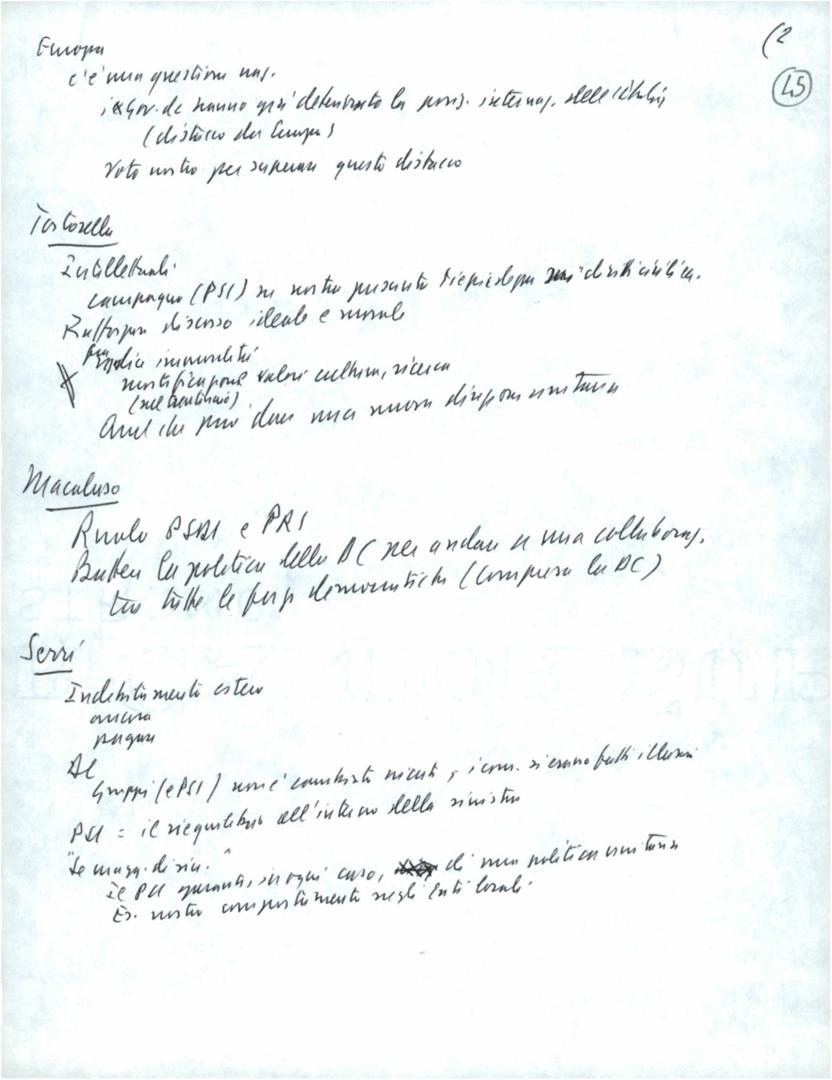 (2
45
Europa
c'è una questione naz.
i gov. dc hanno già determinato la posiz. internaz. dell'Italia
(distacco da Europa)
Voto nostro per superare questo distacco
Tortorella
Intellettuali
campagna (PSI) su nostro presunto diritti civili
Rafforzare discorso ideale e morale
immoralità
mortificazione valori cultura, ricerca
(nel trentennio)
Quel che può dare una nuova direzione unitaria
Macaluso
Ruolo PSDI e PRI
Battere la politica della DC per andare a una collaboraz.
tra tutte le forze democratiche (compresa la DC)
Serri
Indebitamento estero
ancora
pagare
Al
Gruppi (e PSI) non è cambiato niente, i com. si erano fatti illusioni
PSI = il riequilibrio all'interno della sinistra
"Se magg. di sin."
Il PCI garante, in ogni caso, di una politica unitaria
Es. nostro comportamento negli Enti locali